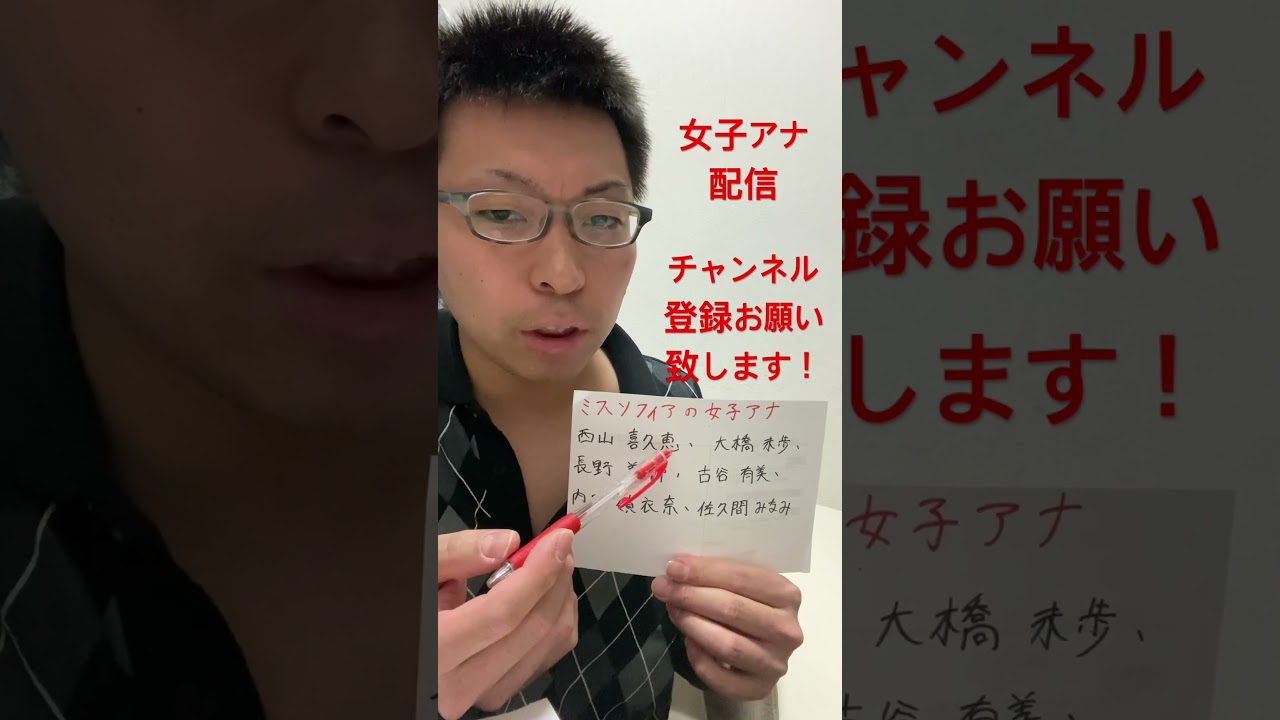 女子アナ
配信
チャンネル
登録お願い
致します！
ミスソフィアの女子アナ
西山 喜久恵、大橋 未歩、
長野 、古谷 有美、
内 衣奈、佐久間 みなみ
ャンネル
録お願い
します！
女子アナ
大橋 未歩、
古谷 有美